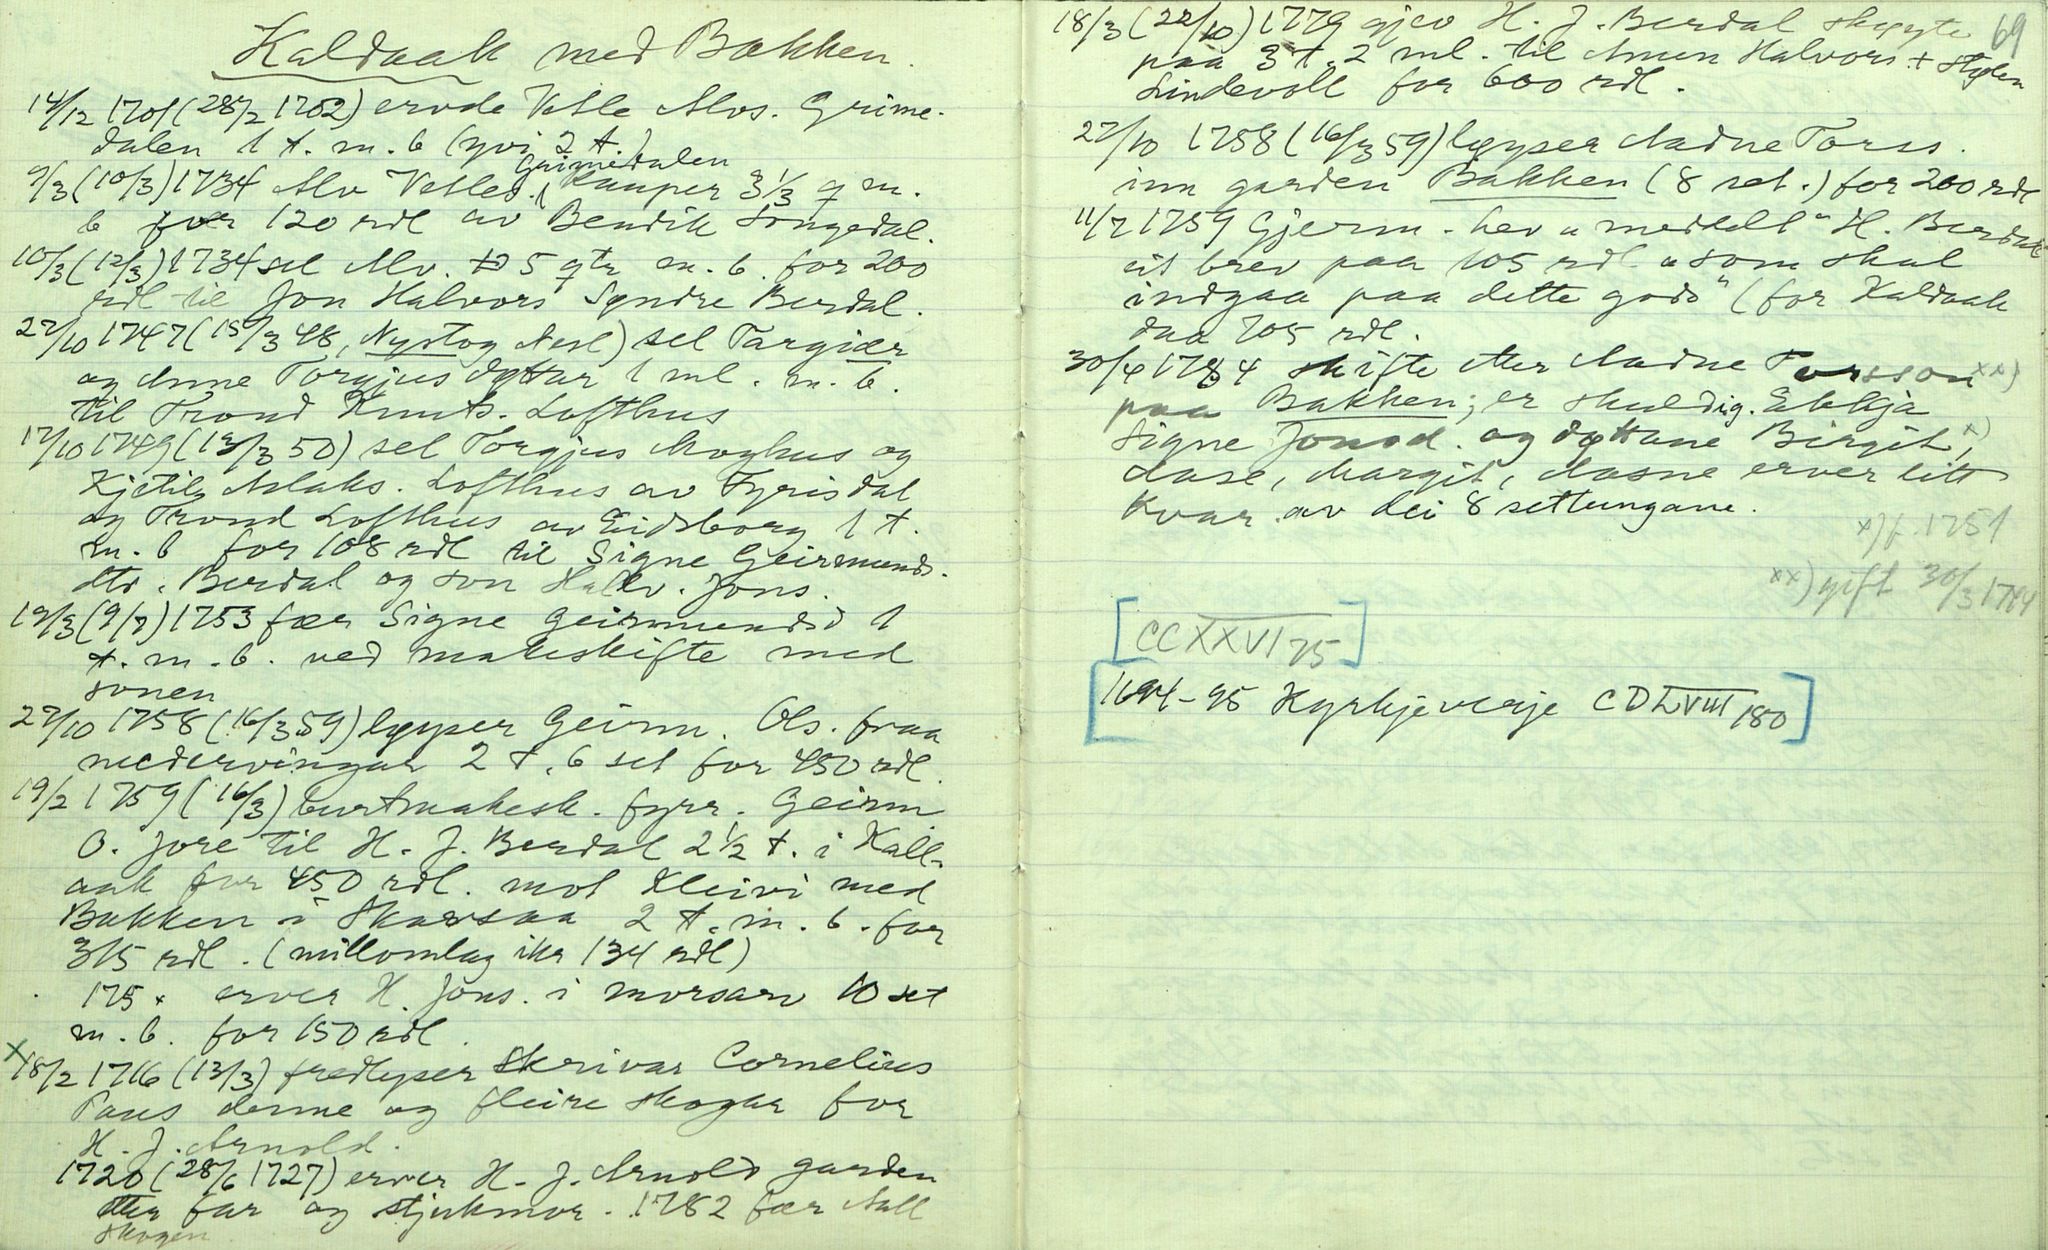 Kaldaak med Bakken.
14/12 1701 (28/2 1702) ervde Vetle Alvs. Grime-
dalen 1 t. m. b (yvi 2 t.)
Grimedalen
9/3 (10/3) 1734 Alv Vetles. kauper 3 1/3 q m.
b for 120 rdl av Bendik Songedal.
10/3 (12/3) 1734 sel Alv. 5 qtr m. b. for 200
rdl til Jon Halvors Syndre Berdal.
27/10 1747 (15/3 48, Nystog Nesl) sel Targjær
og Anne Torgjusdottar 1 ml. m. b.
til Trond Knuts. Lofthus
17/10 1749 (12/3 50) sel Torgjus Moghus og
Kjetil Aslaks. Lofthus av Fyrisdal
og Trond Lofthus av Eidsborg 1 t.
m. b for 108 rdl til Signe Geirmunds-
dtr. Berdal og son Hallv. Jons.
19/3 (9/7) 1753 fær Signe Geirmundsd 1
t. m. b. ved makeskifte med
sonen
27/10 1758 (16/3 59) lyser Geirm. Ols. fraa
medervingar 2 t. 6 set for 450 rdl.
19/2 1759 (16/3) burtmakesk. fyrr. Geirm.
O. Jore til H. J. Berdal 2 1/2 t. i Kall-
aak for 450 rdl. mot Kleivi med
Bakken i Skarsaa 2 t. m. b. for
315 rdl. (millomlag ikr 134 rdl)
175 x erver H. Jons. i morsarv 10 set
m. b. for 150 rdl.
x
18/2 1716 (13/3) fredlyser Skrivar Cornelius
Paus denne og fleire skogar for
H. J. Arnold.
1720 (28/6 1727) erver H. J. Arnold garden
etter far og stjukmor. 1782 fær Aall
skogen
69
18/3 (22/10) 1779 gjev H. J. Berdal skøyte
paa 3 t. 2 ml. til Amun Halvors. +
Lindevoll for 600 rdl.
27/10 1758 (16/3 59) lyser Aadne Torss.
inn garden Bakken (8 set.) for 200 rdl
11/7 1759 Gjerm. hev "meddelt" H. Berdal
eit brev paa 705 rdl "som skal
indgaa paa dette gods" (for Kaldaak
daa 705 rdl.
30/4 1784 skifte etter Aadne Torsson xx)
paa Bakken; er skuldig. Enkja
Signe Jonsd. og døttane Birgit, x)
Aase, Margit, Aasne erver litt
kvar av dei 8 settungane.
x) f. 1751
xx) gift 30/3 1744
[CCXXVI 75]
[1694-95 Kyrkjeverje CDLVIII 180]